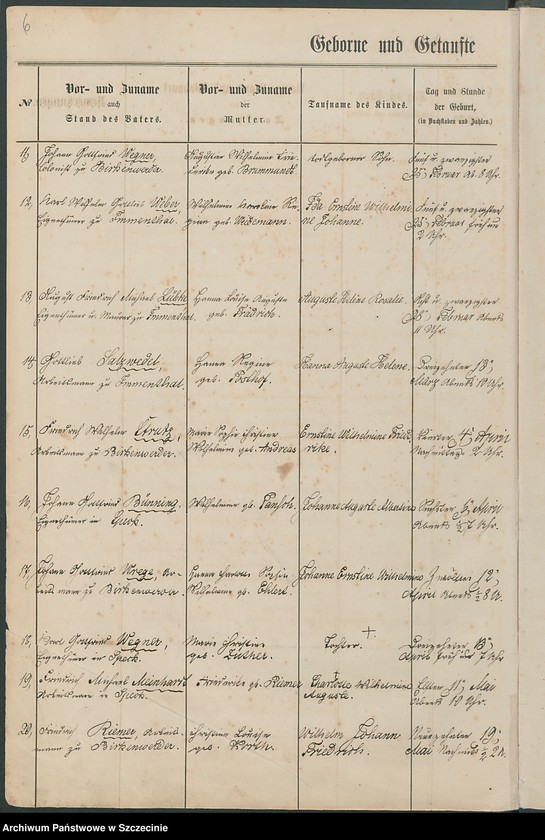 6
Geborne und Getaufte
№
Vor- und Zuname
auch
Stand des Vaters.
Vor- und Zuname
der
Mutter.
Taufname des Kindes.
Tag und Stunde
der Geburt,
(in Buchstaben und Zahlen.)
11, Johann Gottfried Wegner,
Colonist zu Birkenwerder.
Wilhelmine
geb. Brummundt.
todtgeborner Sohn.
Fünf u. zwanzigster
25, Februar Ab. 8 Uhr.
12, Karl Wilhelm Gottlieb Weber
Eigenthümer zu Immenthal.
Wilhelmine Karoline
geb. Wiedemann.
Ida Ernstine Wilhelmi-
ne Johanne.
Fünf u. zwanzigster
25, Februar früh um
2 Uhr.
13, August Friedrich Michael Lübke
Eigenthümer u. Maurer zu Immenthal.
Hanna Louise Auguste
geb. Frädrich.
Auguste Heline Rosalie.
Acht u. zwanzigster
28, Februar Abends
11 Uhr.
14, Gottlieb Salzwedel,
Arbeitsmann zu Immenthal.
Hanna Regine
geb.
Hanna Auguste Helene.
Dreizehnter 13,
März Abends 10 Uhr.
15, Friedrich Wilhelm
Arbeitsmann zu Birkenwerder.
Marie Sophie Christine
Wilhelmine geb. Andreas
Ernstine Wilhelmine Fried-
rike.
Vierter 4, April
Nachmittags 2 Uhr.
16, Johann Gottfried Bünning,
Eigenthümer in
Wilhelmine geb. Pansch.
Johanne Auguste Albertine
Sechster 6, April
Abends ½7 Uhr.
17, Johann Gottfried Wrege, Ar-
beitsmann zu Birkenwerder.
Hanna Sophie
Wilhelmine geb. Ehlert.
Johanne Ernstine Wilhelmine
Zwölfter 12,
April Abends ½8 U.
18, Karl Gottfried Wegner,
Eigenthümer in Speck.
Marie Christine
geb.
Tochter. +
Dreizehnter 13,
April früh um 7 Uhr
19, Friedrich Michael Meinhardt
Arbeitsmann in Speck.
Friedrike geb. Riemer
Charlotte Wilhelmine
Auguste.
Elfter 11, Mai
Abends 10 Uhr.
20, Friedrich Riemer, Arbeits-
mann zu Birkenwerder.
Christine Louise
geb.
Wilhelm Johann
Friedrich.
Neunzehnter 19,
Mai Nachmitt. ½2 U.
Archiwum Państwowe w Szczecinie